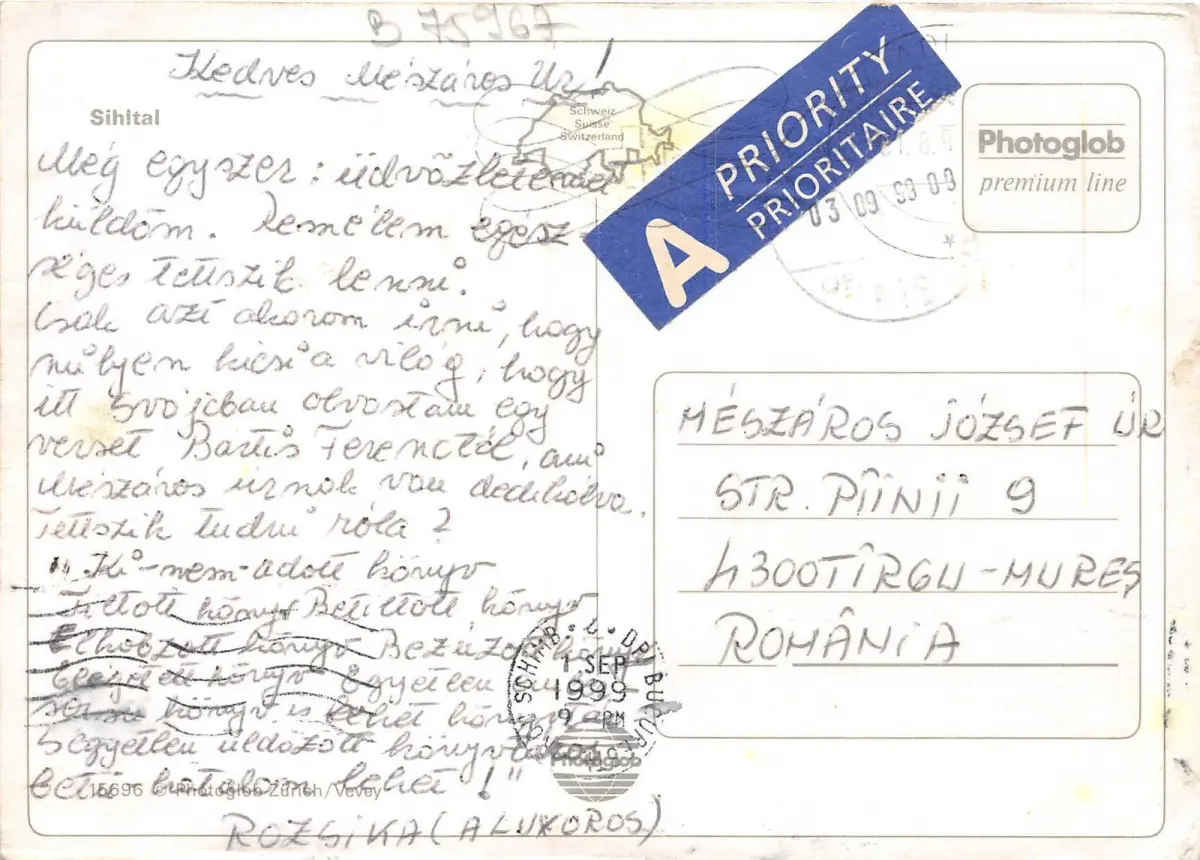 B 75967
Kedves Mészáros Úr!
Sihltal
Schweiz
Suisse
Switzerland
A PRIORITY
PRIORITAIRE
Photoglob
premium line
03 09 99 09
Még egyszer: üdvözletemet
küldöm. Remélem egész-
séges tetszik lenni.
Csak azt akarom írni, hogy
milyen kicsi a világ, hogy
itt Svájcban olvastam egy
verset Bartis Ferenctől, ami
Mészáros úrnak van dedikálva.
Tetszik tudni róla?
"Ki-nem-adott könyv
Tiltott könyv Betiltott könyv
Elkobzott könyv Bezúzott könyv
Elégetett könyv Egyetlen
könyv is lehet
S egyetlen üldözött könyv
betű hatalom lehet!"
ROZSIKA (A LUXOROS)
MÉSZÁROS JÓZSEF ÚR
STR. PÎINII 9
4300 TÎRGU-MUREȘ
ROMÂNIA
1 SEP
1999
9 - PM
Photoglob
15696 © Photoglob Zürich/Vevey